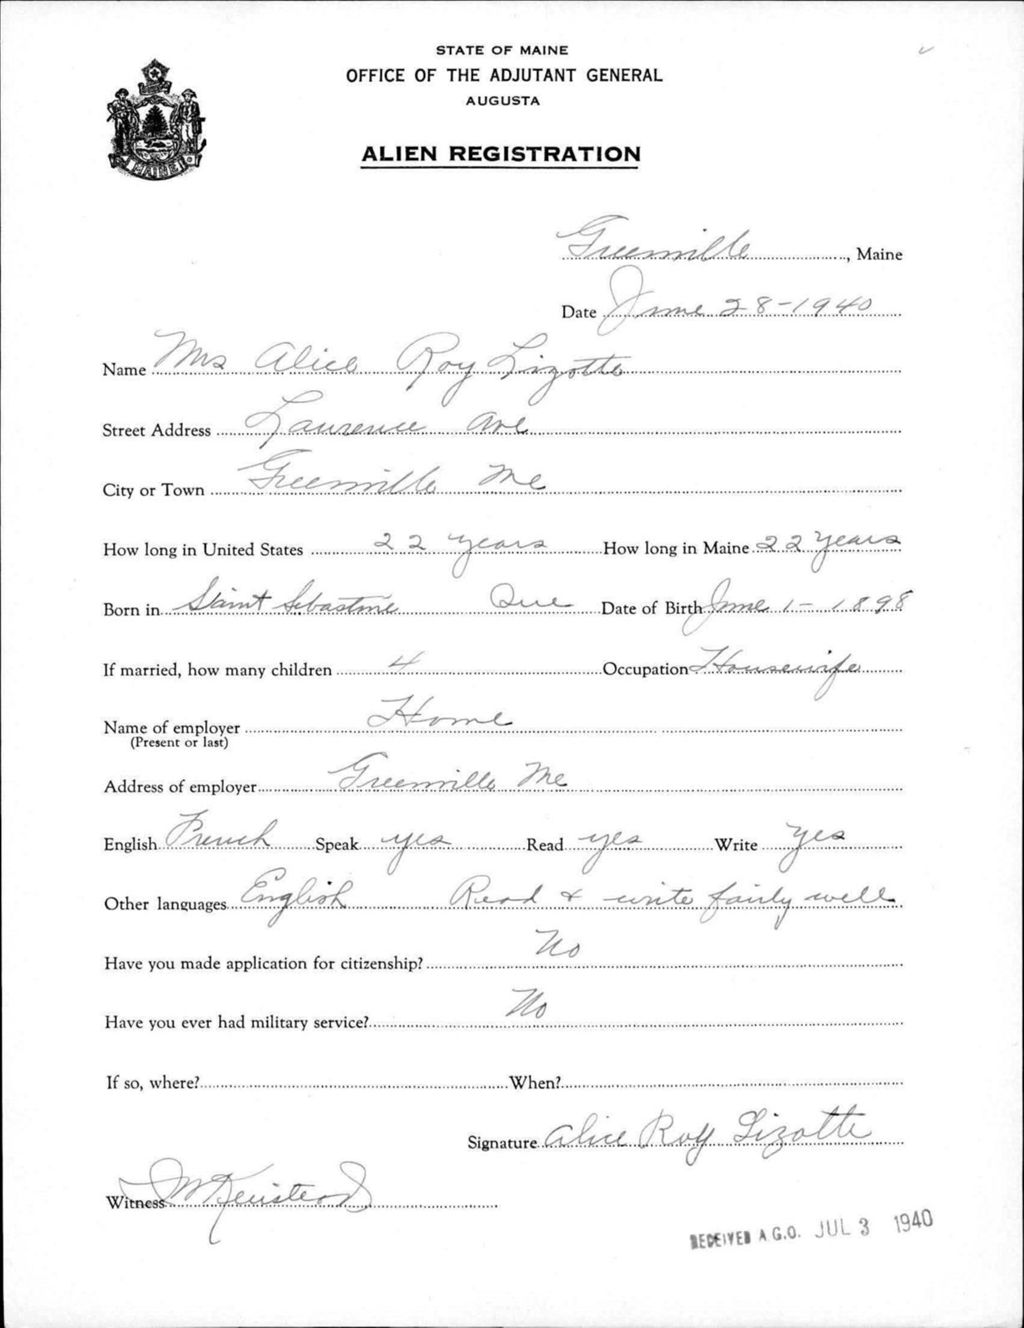 STATE OF MAINE
OFFICE OF THE ADJUTANT GENERAL
AUGUSTA
ALIEN REGISTRATION
MAINE
Greenville, Maine
Date June 28-1940
Name Mrs Alice Roy Lizotte
Street Address Lawrence Ave
City or Town Greenville Me
How long in United States 22 years How long in Maine 22 years
Born in Saint Sebastine Que Date of Birth June 1-1898
If married, how many children 4 Occupation Housewife
Name of employer Home
(Present or last)
Address of employer Greenville Me
English French Speak yes Read yes Write Yes
Other languages English Read & write fairly well
Have you made application for citizenship? No
Have you ever had military service? No
If so, where? When?
Signature Alice Roy Lizotte
Witness
RECEIVED A.G.O. JUL 3 1940